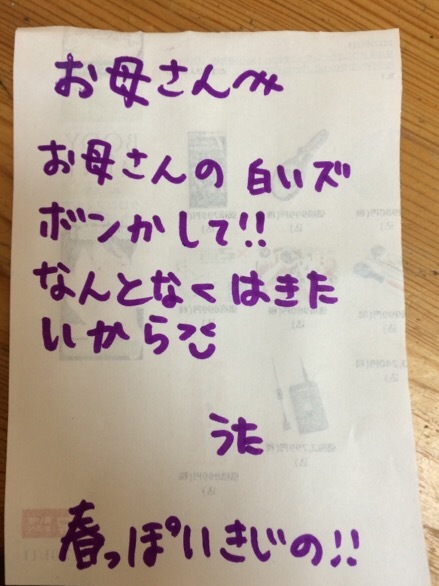 お母さんへ
お母さんの白いズ
ボンかして!!
なんとなくはきた
いから
うた
春っぽいきじの!!